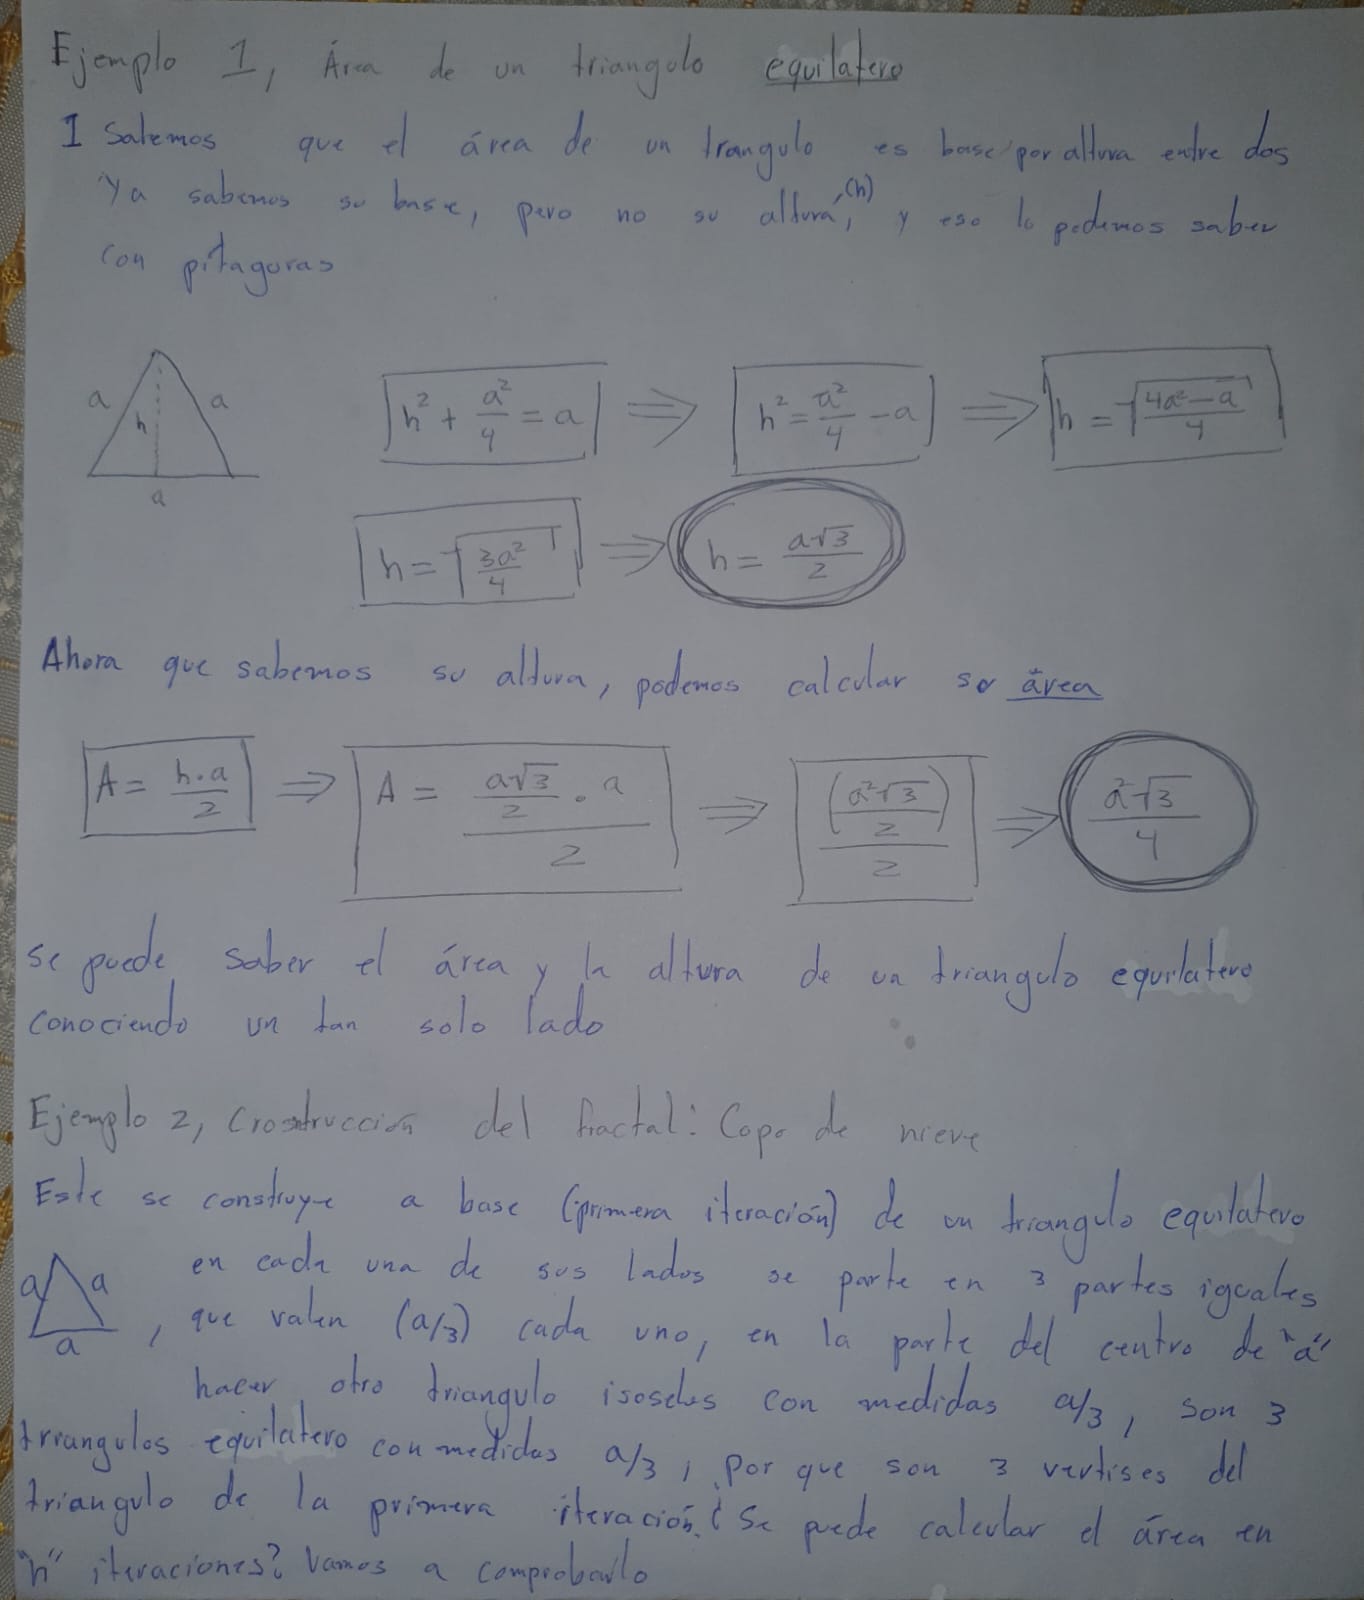 Ejemplo 1, Área de un triangulo equilatero
1 Sabemos que el área de un trangulo es base por altura entre dos
Ya sabemos su base, pero no su altura, (h) y eso lo podemos saber
con pitagoras
a h a a
h² + a²/4 = a ⇒ h² = a²/4 - a ⇒ h = √(4a² - a)/4
h = √3a²/4 ⇒ h = a√3/2
Ahora que sabemos su altura, podemos calcular su área
A = h·a/2 ⇒ A = (a√3/2 · a)/2 ⇒ (a²√3/2)/2 ⇒ a²√3/4
se puede saber el área y la altura de un triangulo equilatero
conociendo un tan solo lado
Ejemplo 2, Crostrucción del fractal: Copo de nieve
Este se construye a base (primera iteración) de un triangulo equilatero
a a a , en cada una de sus lados se parte en 3 partes iguales
que valen (a/3) cada uno, en la parte del centro de "a"
hacer otro triangulo isoseles con medidas a/3, son 3
triangulos equilatero con medidas a/3, por que son 3 vertises del
triangulo de la primera iteración. ¿Se puede calcular el área en
"n" iteraciones? Vamos a comprobarlo